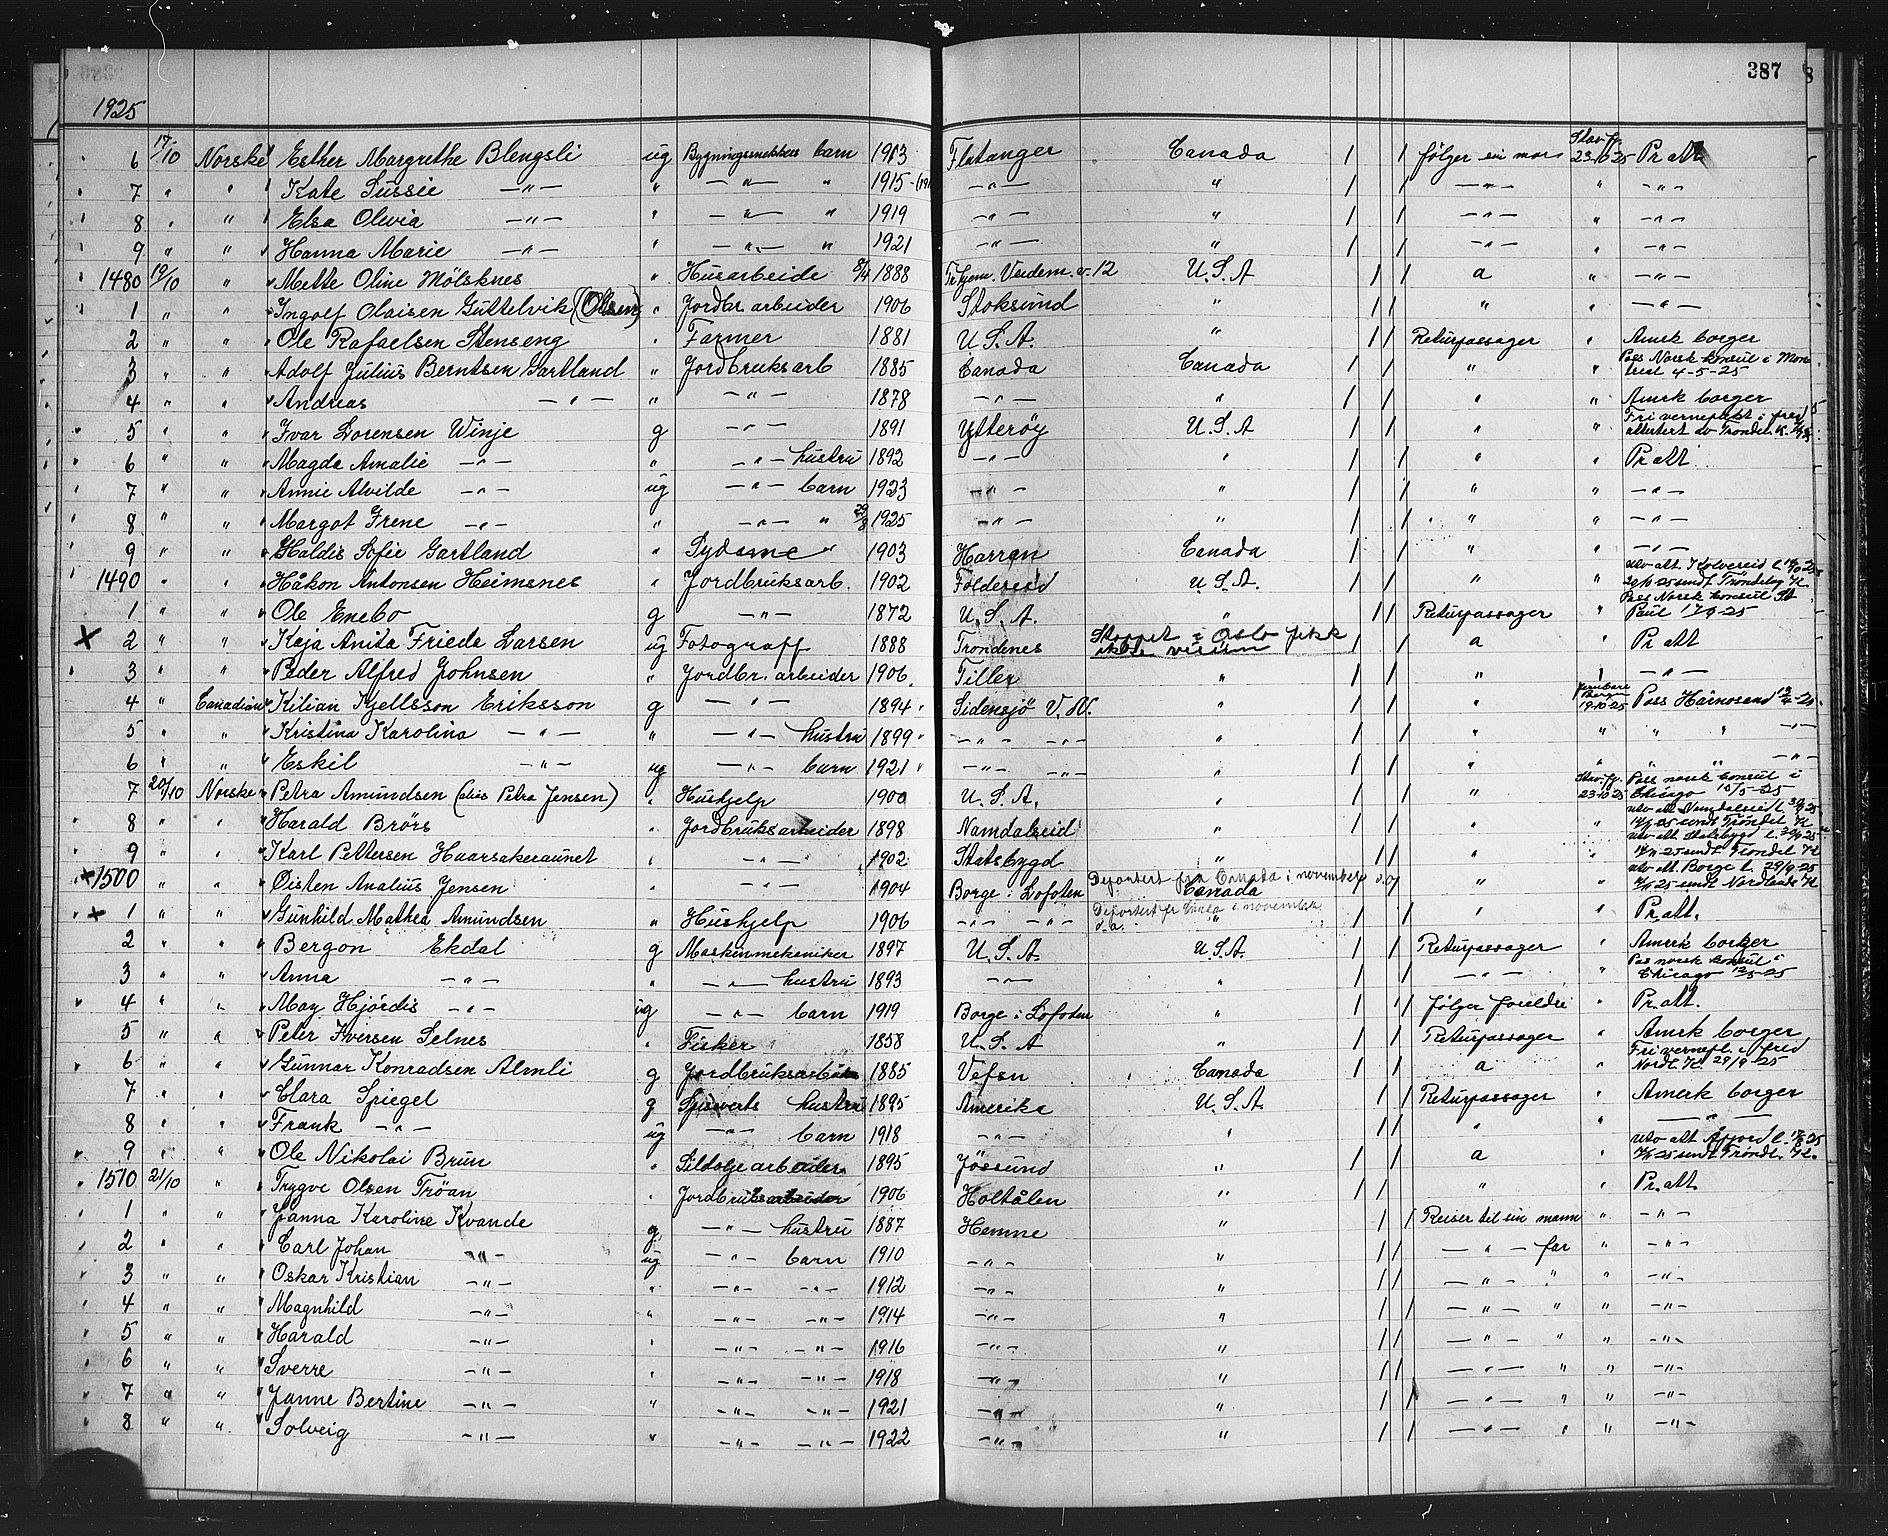 387
1925
6 17/10 Norske Esther Margrethe Blengsli ug Bygningssnekkers barn 1913 Flatanger Canada / / følger sin mor Stav.fj. 23-10-25 Pr att
7 " " Kate Sussie —"— " —"— " 1915 —"— " / / —"— " —"—
8 " " Elsa Olivia —"— " —"— " 1919 —"— " / / —"— " —"—
9 " " Hanna Marie —"— " —"— " 1921 —"— " / / —"— " —"—
1480 19/10 " Mette Oline Mölsknes " Husarbeide 1888 U.S.A / / a " —"—
1 " " Ingolf Olaisen Guttelvik (Olsen) " Jordbr arbeider 1906 Stoksund " / / " " —"—
2 " " Ole Rafaelsen Stenseng " Farmer 1881 U.S.A. " / / Returpassager " Amrk borger
3 " " Adolf Julius Berntsen Gartland " Jordbruksarb 1885 Canada Canada / / " " Pass Norsk konsul i Mon
treal 4-5-25
4 " " Andreas —"— " —"— 1878 —"— " / / " " Amrk borger
5 " " Ivar Lorensen Winje g —"— 1891 Ytterøy U.S.A / / " " Fri vernepligt i fred
attestert av Trøndel.
6 " " Magda Amalie —"— " —"— hustru 1892 —"— " / / " " Pr att
7 " " Annie Alvilde —"— ug —"— barn 1923 —"— " / / " " —"—
8 " " Margot Irene —"— " —"— " 29/8 1925 —"— " / / " " —"—
9 " " Haldis Sofie Gartland " Sydame " 1903 Harran Canada / / " " —"—
1490 " " Håkon Antonsen Heimsnes " Jordbruksarb. 1902 Foldereid U.S.A. / / " " utv att. Kolvereid
sendt Trøndelag
1 " " Ole Enebo g —"— 1872 U.S.A. " / / Returpassager " Pass Norsk konsul St
Paul 17-9-25
X 2 " " Kaja Anita Friede Larsen ug Fotograff 1888 Trondenes Stoppet i Oslo fikk
ikke visum / / a " Pr att
3 " " Peder Alfred Johnsen " Jordbr. arbeider 1906. Tiller " / / " " —"—
4 " Canadian Kilian Kjellsson Eriksson g —"— 1894 Sidensjö V.N. " / / " Bergen 19-10-25 Pass Härnosand
5 " " Kristina Karolina —"— " —"— hustru 1899 —"— —"— " / / " " " " —"—
6 " " Eskil —"— ug —"— barn 1921 —"— —"— " / / " " " " —"—
7 20/10 Norske Petra Amundsen (alias Petra Jensen) " Hushjelp 1900 U.S.A. " / / " Stav.fj. 23-10-25 Pass norsk konsul i
Chicago 15/5-25
8 " " Harald Brörs " Jordbruksarbeider 1898 Namdalseid " / / " " utv att Namdalseid
sendt Trøndel
9 " " Karl Pettersen Haarsakeraunet " —"— 1902 Statsbygd " / / " " utv att Statsbygd
sendt Trondel
X 1500 " " Öisten Analius Jensen " —"— 1904 Borge i Lofoten Deportert fra Canada i november d.a.
Canada " " utv att. Borge 29/9-25
sendt Nordlands
X 1 " " Gunhild Mathea Amundsen " Hushjelp 1906 —"— —"— Deportert fr Canada i november
d.a. " / / " " Pr att.
2 " " Bergon Ekdal g Maskinmekaniker 1897 U.S.A. U.S.A. / / Returpassager " Amerk borger
3 " " Anna —"— " —"— hustru 1893 —"— " / / —"— " Pas norsk konsul i
Chicago 12/5-25
4 " " May Hjördis —"— ug —"— barn 1919 Borge i Lofoten " / / følger foreldre " Pr att.
5 " " Peter Iversen Selnes " Fisker 1858 U.S.A " / / Returpassager " Amrk borger
6 " " Gunnar Konradsen Almli g Jordbruksarbeider 1885 Vefsn Canada / / a " Fri vernepl. i fred
Nordl. K. 29/9-25
7 " " Clara Spiegel g hustru 1895 Amerika U.S.A. / / Returpassager " Amerk borger
8 " " Frank —"— ug —"— barn 1918 —"— " / / " " —"—
9 " " Ole Nikolai Brun " Sildolje arbeider 1895 Jössund " / / a " utv att Åfjord
sendt Trøndl.
1510 21/10 " Trygve Olsen Tröan " Jordbruksarbeider 1906 Holtålen " / / " " Pr. att
1 " " Janna Karoline Kvande g —"— hustru 1887 Hemne " / / Reiser til sin mann " —"—
2 " " Carl Johan —"— ug —"— barn 1910 —"— " / / —"— far " —"—
3 " " Oskar Kristian —"— " —"— —"— 1912 —"— " / / —"— " " —"—
4 " " Magnhild —"— " —"— —"— 1914 —"— " / / —"— " " —"—
5 " " Harald —"— " —"— —"— 1916 —"— " / / —"— " " —"—
6 " " Sverre —"— " —"— —"— 1918 —"— " / / —"— " " —"—
7 " " Janne Bertine —"— " —"— —"— 1921 —"— " / / —"— " " —"—
8 " " Solveig —"— " —"— —"— 1922 —"— " / / —"— " " —"—